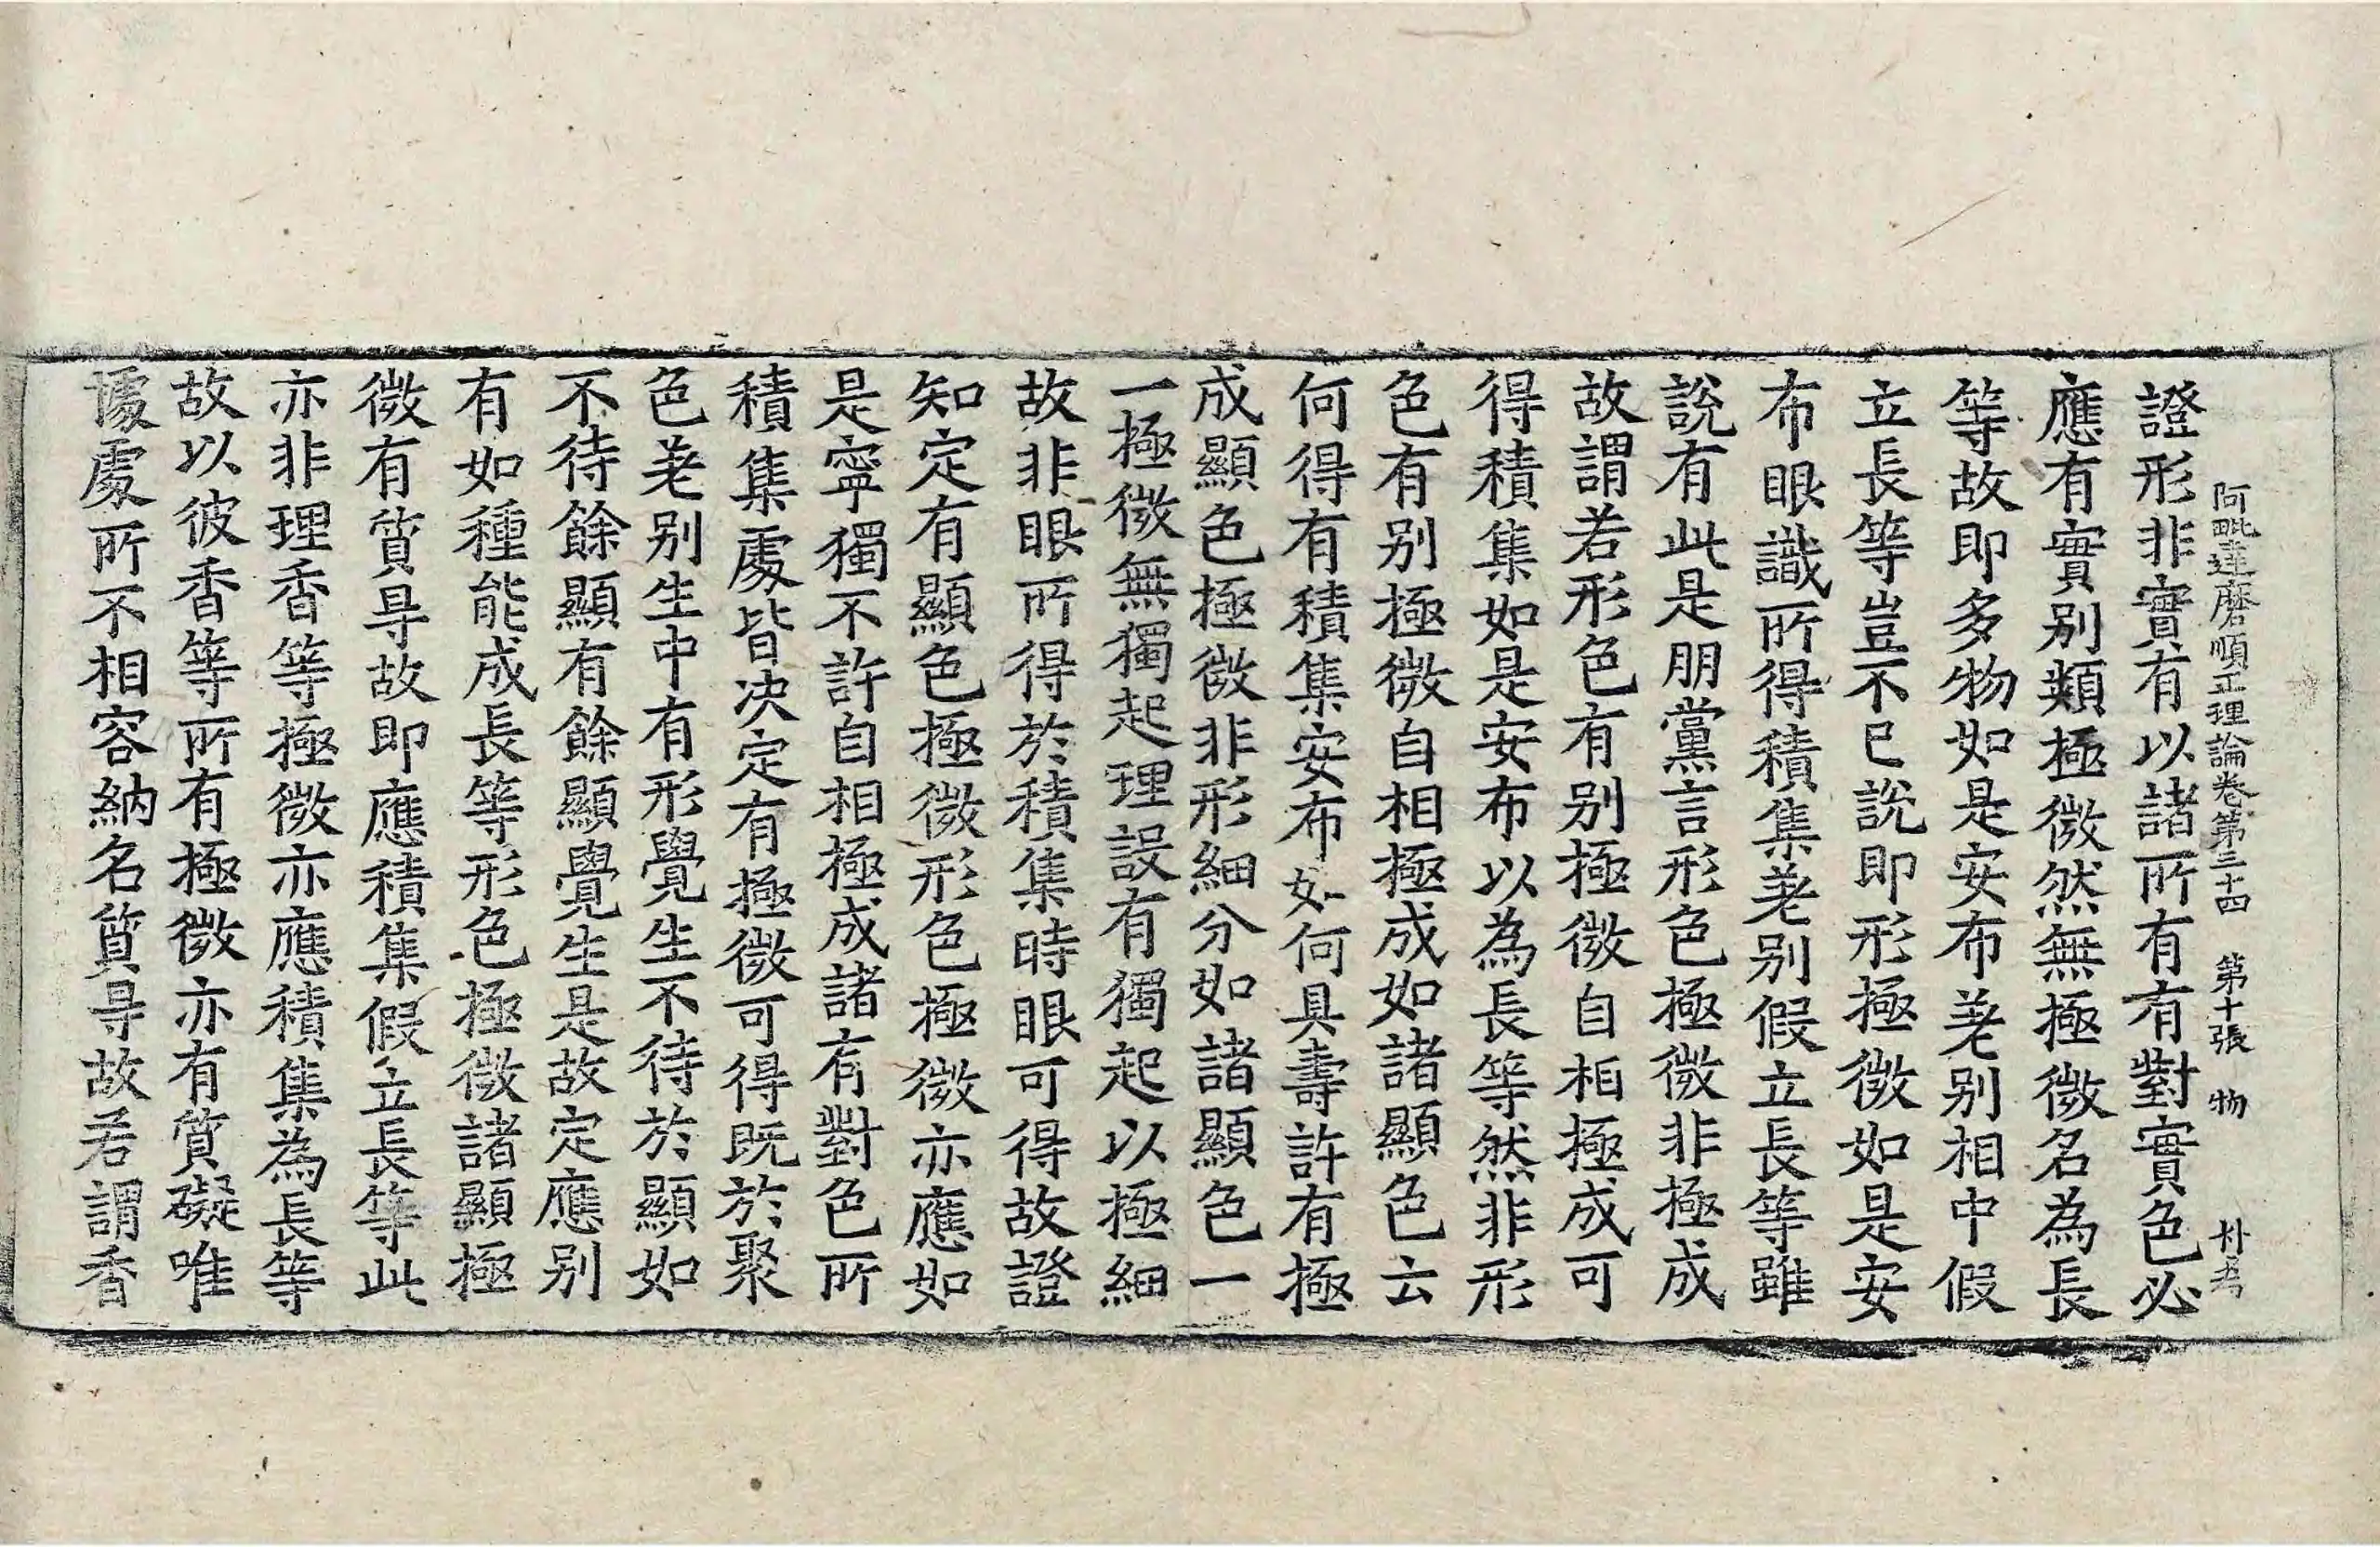 阿毗達磨順正理論卷第三十四 第十張 物
證形非實有以諸所有有對實色必
應有實別類極微然無極微名為長
等故即多物如是安布差別相中假
立長等豈不已說即形極微如是安
布眼識所得積集差別假立長等雖
說有此是朋黨言形色極微非極成
故謂若形色有別極微自相極成可
得積集如是安布以為長等然非形
色有別極微自相極成如諸顯色云
何得有積集安布如何具壽許有極
成顯色極微非形細分如諸顯色一
一極微無獨起理設有獨起以極細
故非眼所得於積集時眼可得故證
知定有顯色極微形色極微亦應如
是寧獨不許自相極成諸有對色所
積集處皆決定有極微可得既於聚
色差別生中有形覺生不待於顯如
不待餘顯有餘顯覺生是故定應別
有如種能成長等形色極微諸顯極
微有質㝵故即應積集假立長等此
亦非理香等極微亦應積集為長等
故以彼香等所有極微亦有質礙唯
據處所不相容納名質㝵故若謂香